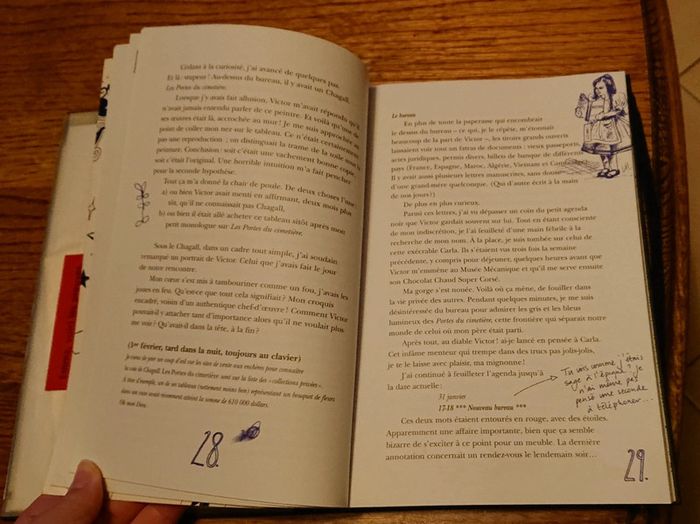 Cédant à la curiosité, j'ai avancé de quelques pas.
Et là : stupeur ! Au-dessus du bureau, il y avait un Chagall,
Les Portes du cimetière.
Lorsque j'y avais fait allusion, Victor m'avait répondu qu'il
n'avait jamais entendu parler de ce peintre. Et voilà qu'une de
ses œuvres était là, accrochée au mur ! Je me suis approchée au
point de coller mon nez sur le tableau. Ce n'était certainement
pas une reproduction ; on distinguait la trame de la toile sous
peinture. Conclusion : soit c'était une vachement bonne copie,
soit c'était l'original. Une horrible intuition m'a fait pencher
pour la seconde hypothèse.
Tout ça m'a donné la chair de poule. De deux choses l'une :
a) ou bien Victor avait menti en affirmant, deux mois plus
tôt, qu'il ne connaissait pas Chagall,
b) ou bien il était allé acheter ce tableau sitôt après mon
petit monologue sur Les Portes du cimetière.
Sous le Chagall, dans un cadre tout simple, j'ai soudain
remarqué un portrait de Victor. Celui que j'avais fait le jour
de notre rencontre.
Mon cœur s'est mis à tambouriner comme un fou, j'avais les
joues en feu. Qu'est-ce que tout cela signifiait ? Mon croquis
encadré, voisin d'un authentique chef-d'œuvre ! Comment Victor
pouvait-il y attacher tant d'importance alors qu'il ne voulait plus
me voir ? Qu'avait-il dans la tête, à la fin ?
(1er février, tard dans la nuit, toujours au clavier)
Je viens de jeter un coup d'œil sur les sites de vente aux enchères pour connaître
la cote de Chagall. Les Portes du cimetière sont sur la liste des « collections privées ».
À titre d'exemple, un de ses tableaux (nettement moins bien) représentant un bouquet de fleurs
dans un vase avait récemment atteint la somme de 610 000 dollars.
Oh mon Dieu.
28.
Le bureau
En plus de toute la paperasse qui encombrait
le dessus du bureau – ce qui, je le répète, m'étonnait
beaucoup de la part de Victor –, les tiroirs grands ouverts
laissaient voir tout un fatras de documents : vieux passeports,
actes juridiques, permis divers, billets de banque de différents
pays (France, Espagne, Maroc, Algérie, Vietnam et Cambodge).
Il y avait aussi plusieurs lettres manuscrites, sans doute
d'une grand-mère quelconque. (Qui d'autre écrit à la main
de nos jours ?)
De plus en plus curieux.
Parmi ces lettres, j'ai vu dépasser un coin du petit agenda
noir que Victor gardait souvent sur lui. Tout en étant consciente
de mon indiscrétion, je l'ai feuilleté d'une main fébrile à la
recherche de mon nom. À la place, je suis tombée sur celui de
cette exécrable Carla. Ils s'étaient vus trois fois la semaine
précédente, y compris pour déjeuner, quelques heures avant que
Victor m'emmène au Musée Mécanique et qu'il me serve ensuite
son Chocolat Chaud Super Corsé.
Ma gorge s'est nouée. Voilà où ça mène, de fouiller dans
la vie privée des autres. Pendant quelques minutes, je me suis
désintéressée du bureau pour admirer les gris et les bleus
lumineux des Portes du cimetière, cette frontière qui séparait notre
monde de celui où mon père était parti.
Après tout, au diable Victor ! ai-je lancé en pensée à Carla.
Cet infâme menteur qui trempe dans des trucs pas jolis-jolis,
je te le laisse avec plaisir, ma mignonne !
J'ai continué à feuilleter l'agenda jusqu'à
la date actuelle :
31 janvier
17-18 *** Nouveau bureau ***
Tu vois comme j'étais
sage à l'époque ? Je
n'ai même pas
pensé une seconde
à téléphoner...
Ces deux mots étaient entourés en rouge, avec des étoiles.
Apparemment une affaire importante, bien que ça semble
bizarre de s'exciter à ce point pour un meuble. La dernière
annotation concernait un rendez-vous le lendemain soir…
29.